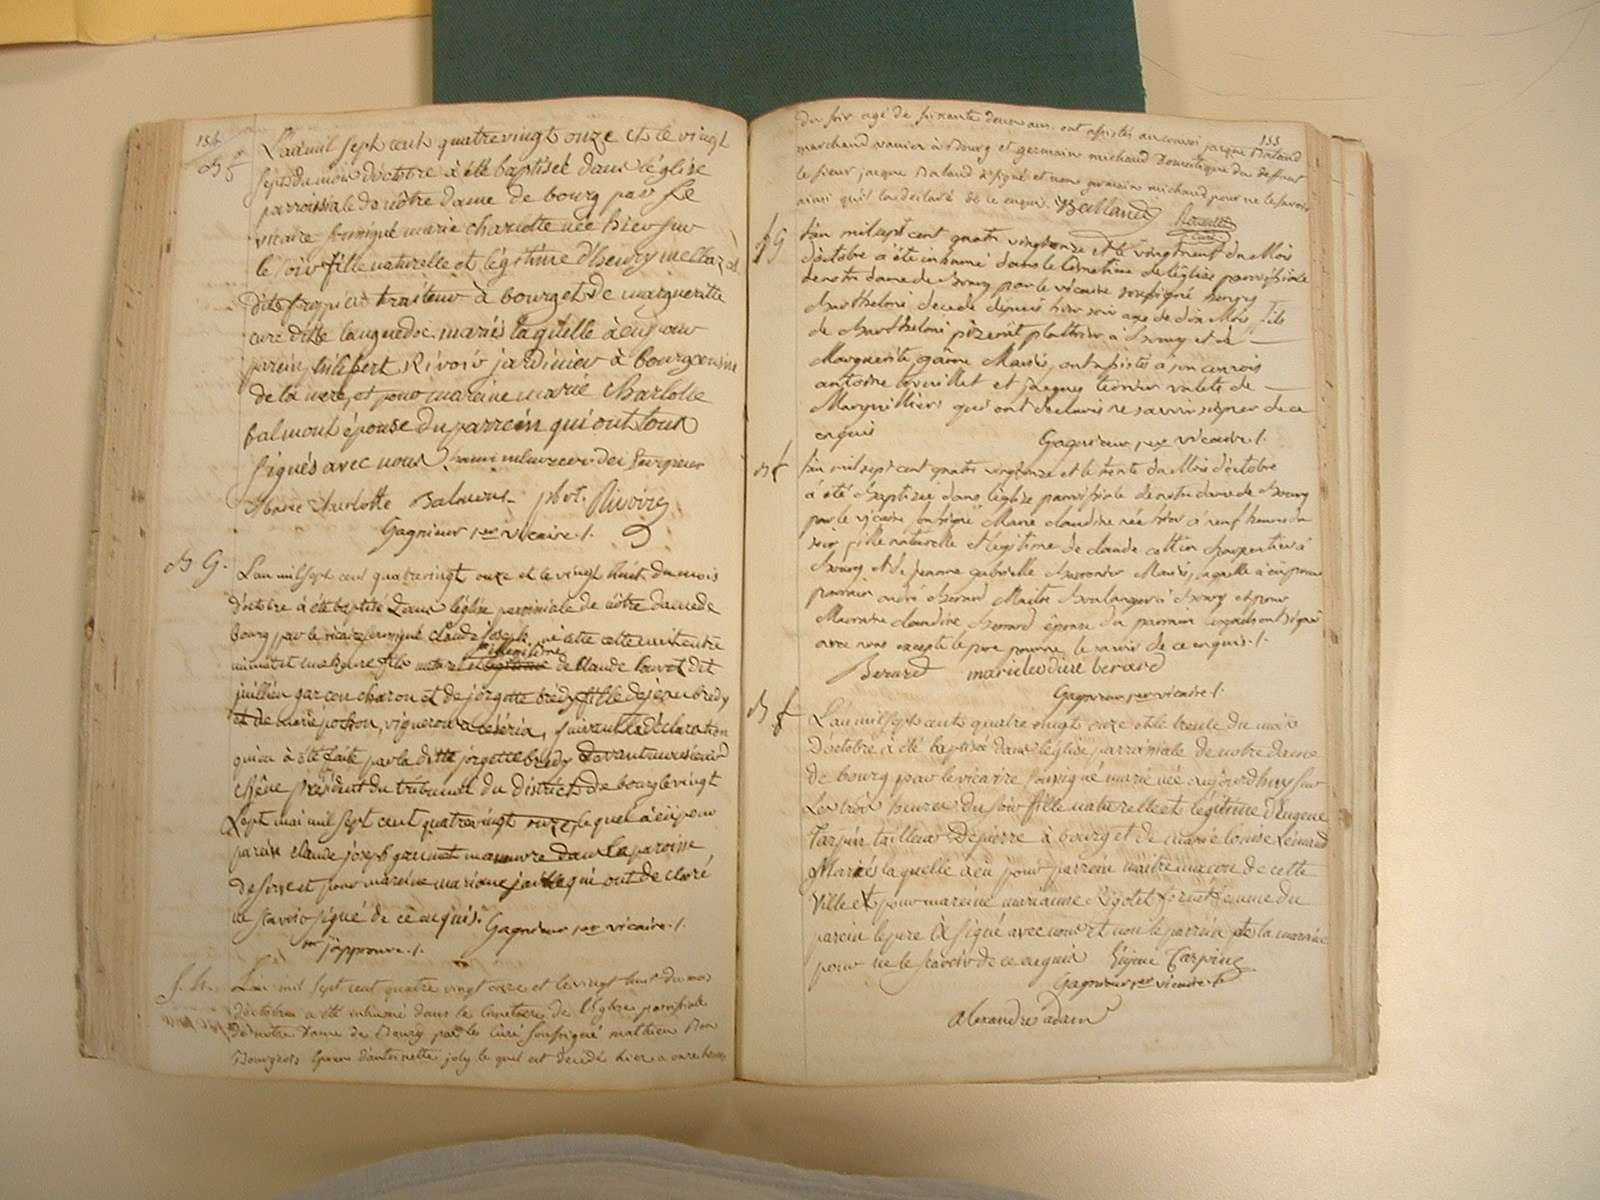 154
B f
L'an mil sept cent quatre vingt onze et le vingt
sept du mois d'octobre à été baptisée dans l'église
parroissiale de nôtre dame de bourg par le
vicaire soussigné marie charlotte née hier sur
le soir fille naturelle et légitime d'henry mellaz
dit traiteur à bourg et de margueritte
ditte languedoc mariés laquelle à eu pour
parrein philibert Rivoir jardinier à bourg
de la et pour mareine marie charlotte
balmont épouse du parrein qui ont tous
signés avec nous
Marie Charlotte Balmont phbt. Rivoire
Gagnieur 1er vicaire /.
B G.
L'an mil sept cent quatre vingt onze et le vingt huit du mois
d'octobre à été baptisé dans l'église parroissiale de nôtre dame de
bourg par le vicaire soussigné Claude joseph né cette nuit entre
minuit et une heure fils naturel illégitime de Claude louvet dit
jullien garçon charon et de jorgette brédy fille de brédy
et de marie pochon, vigneron a céséria, suivant la déclaration
qui en à été faite par la ditte jorgette brédy devant monsieur
chêne président du tribunal du district de bourg le vingt
sept mai mil sept cent quatrevingt onze, lequel à eu pour
parein claude joseph manœuvre dans la paroisse
de et pour mareine qui ont declaré
ne scavoir signé de ce enquis. Gagnieur 1er vicaire /.
j'approuve /.
S. h.
L'an mil sept cent quatre vingt onze et le vingt huit du mois
d'octobre a été inhumé dans le cimetiere de l'Eglise paroissiale
de notre Dame de Bourg par le Curé soussigné mathieu
Bourgeois époux d'antoinette joly le quel est décédé hier a onze heures
155
du soir agé de soixante deux ans. ont assistés au convoi jacque Baland
marchand vanier à Bourg et germain michaud domestique du deffunt
le sieur jacque Baland a signé et non germain michaud pour ne le savoir
ainsi qu'il l'a déclaré de ce enquis. Balland
S G
L'an mil sept cent quatre vingt onze et le vingt neuf du Mois
d'octobre à été inhumé dans le cimetiere de l'église parroissiale
de notre dame de Bourg par le vicaire soussigné henry
Barthelemi decedé depuis hier soir agé de dix Mois fils
de Barthelemi plattrier à Bourg et de
Marguerite Mariés, ont assistés à son convois
antoine bouillet et jacques terrier valets de
Marguilliers qui ont déclarés ne savoir signer de ce
enquis
Gagnieur 1er vicaire /.
B f
L'an mil sept cent quatre vingt onze et le trente du Mois d'octobre
à été Baptisée dans l'église parroissiale de notre dame de Bourg
par le vicaire soussigné Marie claudine née hier à neuf heures du
soir fille naturelle et legitime de claude cottin charpentier à
Bourg et de jeanne gabrielle Mariés, laquelle à eu pour
parrain Berard Maitre Boulanger à Bourg et pour
Marraine claudine Berrard épouse du parrain lesquels ont signé
avec nous excepté le pere pour ne le savoir de ce enquis /.
Berard marie claudine berard
Gagnieur 1er vicaire /.
B f
L'an mil sept cent quatre vingt onze et le trente du mois
d'octobre à été baptisée dans l'église parroissiale de notre dame
de bourg par le vicaire soussigné marie née aujourdhuy sur
les trois heures du soir fille naturelle et légitime d'Eugene
Tarpin tailleur de pierre à bourg et de marie louise Lémard
Mariés laquelle à eu pour parrein maitre maçon de cette
Ville et pour mareine marianne Rigolet femme du
parein le pere à signé avec nous et non le parrein et la mareine
pour ne le scavoir de ce enquis Eugene Tarpin
Gagnieur 1er vicaire /.
alexandre adam